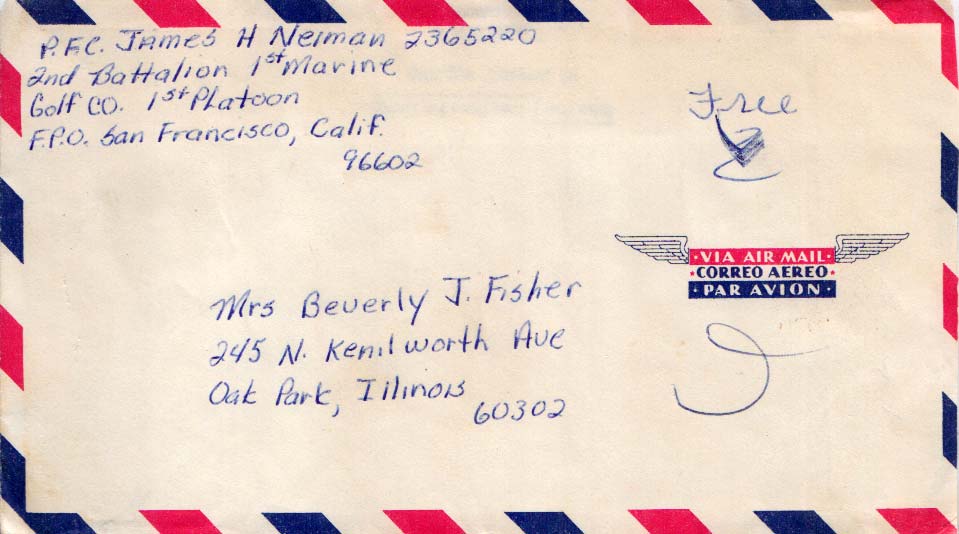 P.F.C. James H Neiman 2365220
2nd Battalion 1st Marine
Golf CO. 1st Platoon
F.P.O. San Francisco, Calif.
96602
Free
VIA AIR MAIL
CORREO AEREO
PAR AVION
Mrs Beverly J. Fisher
245 N. Kenilworth Ave
Oak Park, Illinois
60302